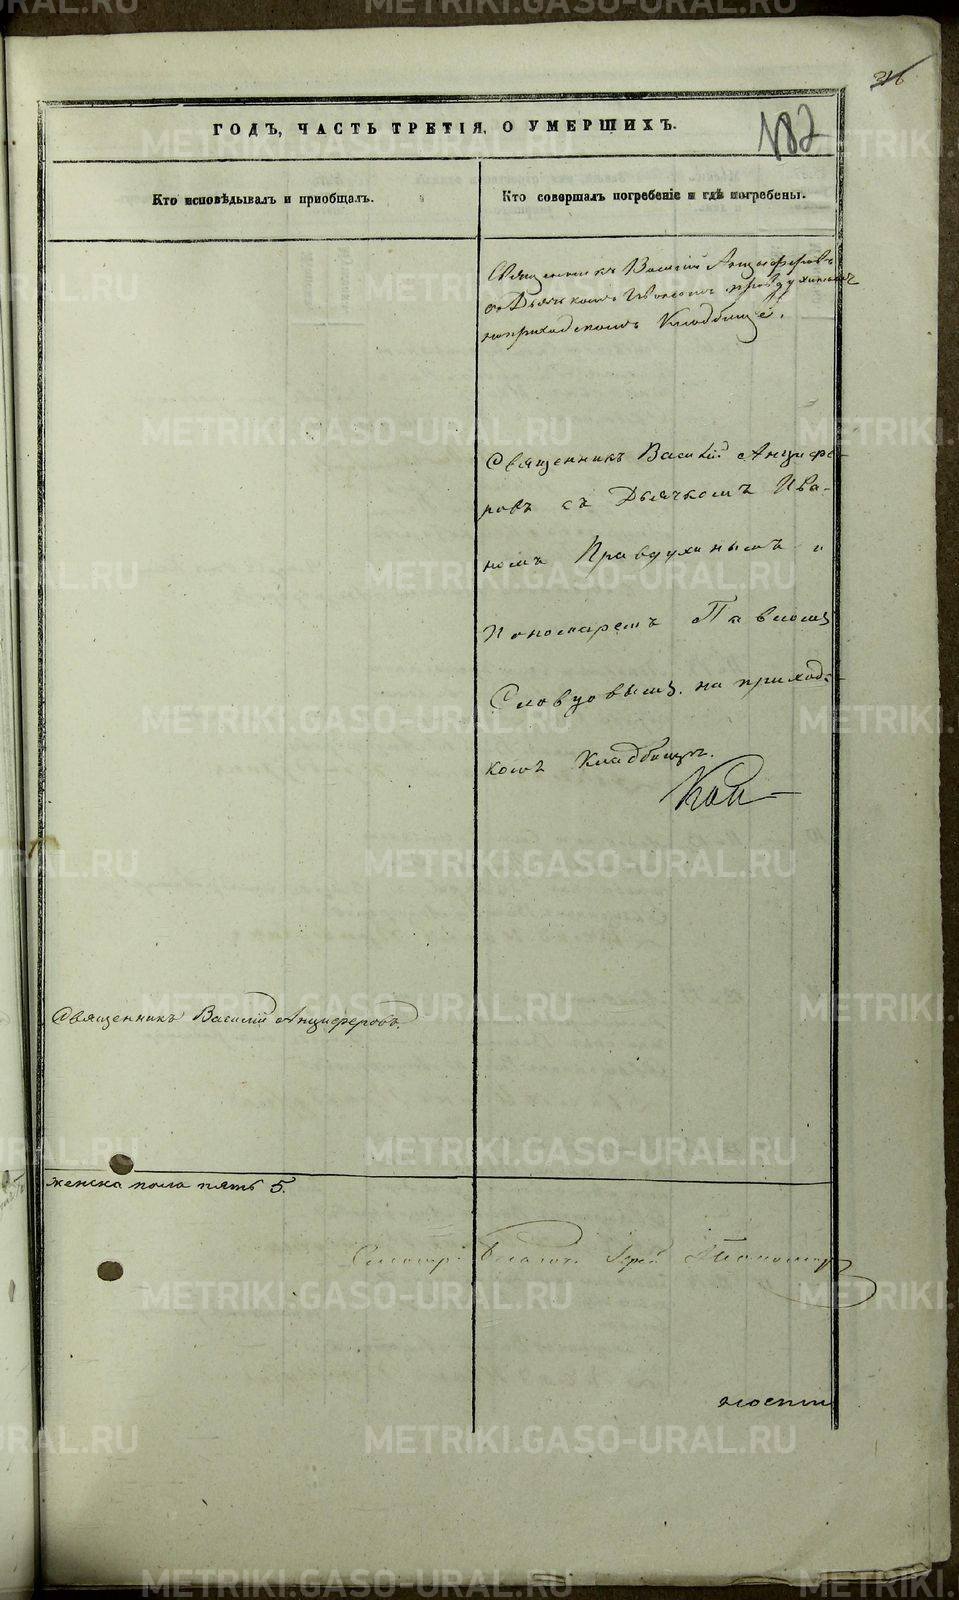 182
ГОДЪ, ЧАСТЬ ТРЕТІЯ, О УМЕРШИХЪ.
Кто исповѣдывалъ и пріобщалъ.
Кто совершалъ погребеніе и гдѣ погребены.
Священникъ Василій Анциферовъ
съ Дьячкомъ Иваномъ Правдухинымъ
на приходскомъ Кладбищѣ.
Священникъ Василій Анцифе-
ровъ съ Дьячкомъ Ива-
номъ Правдухинымъ и
Пономаремъ Павломъ
Словцовымъ на приход-
комъ Кладбищѣ.
Священникъ Василій Анциферовъ.
женска пола пять 5.
METRIKI.GASO-URAL.RU